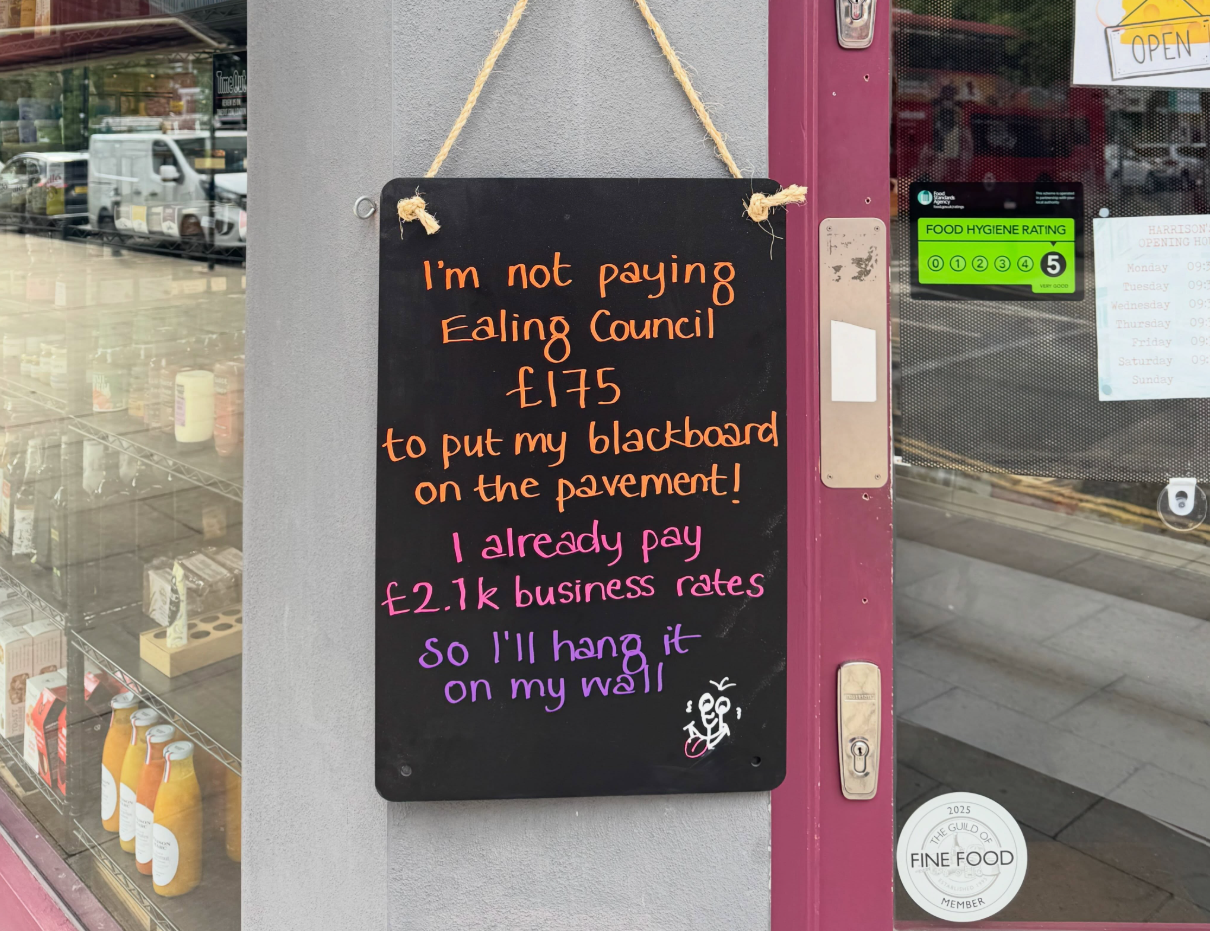 I'm not paying
Ealing Council
£175
to put my blackboard
on the pavement!
I already pay
£2.1k business rates
so I'll hang it
on my wall
TimeOut
OPEN
Food
Standards
Agency
FOOD HYGIENE RATING
0 1 2 3 4 5
VERY GOOD
HARRISON'S
OPENING HO
Monday 09:
Tuesday 09:
Wednesday 09:
Thursday 09:
Friday 09:
Saturday 09:
Sunday
2025
THE GUILD OF
FINE FOOD
MEMBER